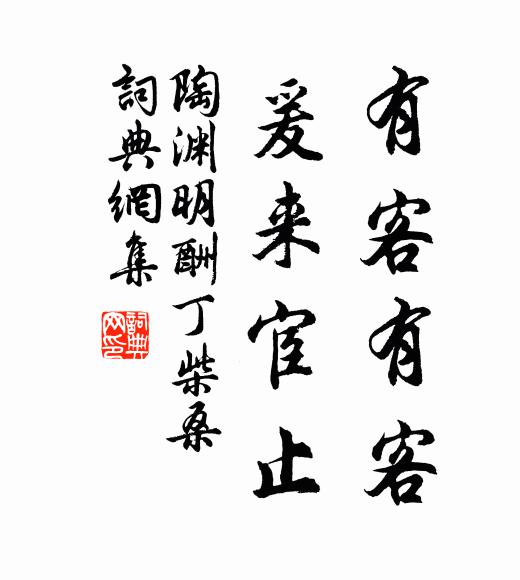 有客有客
爰来宦止
陶渊明酬丁柴桑
詞典網集
詞典網印